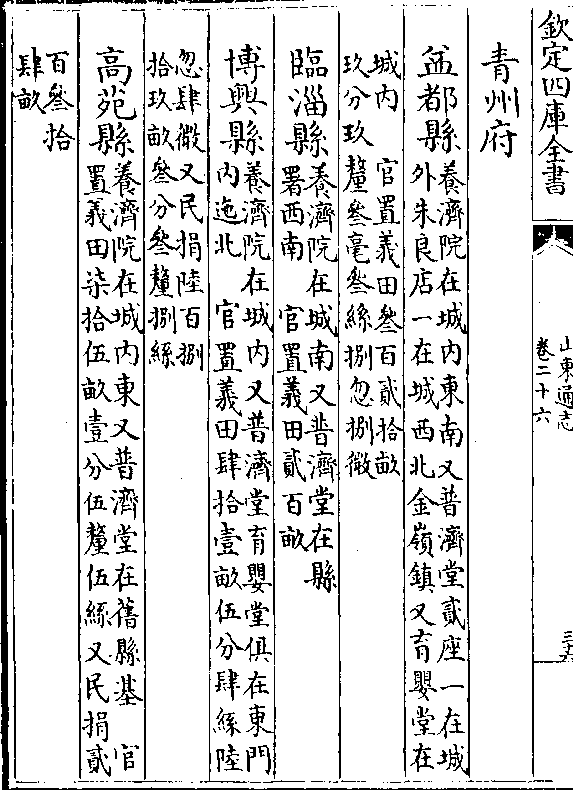 欽定四庫全書
山東通志
卷二十六
青州府
益都縣養濟院在城内東南又普濟堂貳座一在城
外朱良店一在城西北金嶺鎮又育嬰堂在
城内　官置義田叄百貳拾畝
玖分玖釐叄毫叄絲捌忽捌微
臨淄縣養濟院在城南又普濟堂在縣
署西南　官置義田貳百畝
博興縣養濟院在城内又普濟堂育嬰堂俱在東門
内迤北　官置義田肆拾壹畝伍分肆絲陸
忽肆微又民捐陸百捌
拾玖畝叄分叄釐捌絲
高苑縣養濟院在城内東又普濟堂在舊縣基　官
置義田柒拾伍畝壹分伍釐伍絲又民捐貳
百叄拾
肆畝